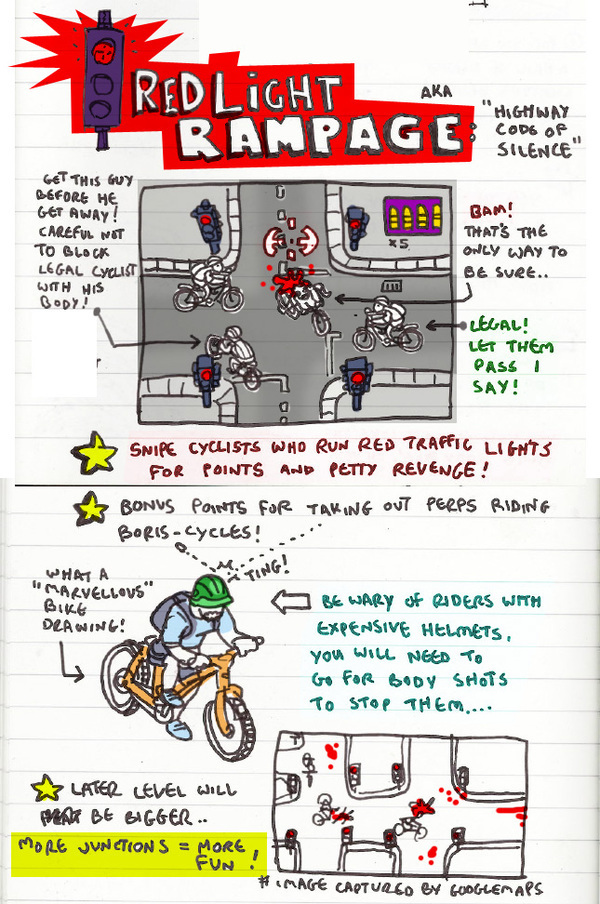 RED LIGHT
RAMPAGE:
AKA
"HIGHWAY
CODE OF
SILENCE"
GET THIS GUY
BEFORE HE
GET AWAY!
CAREFUL NOT
TO BLOCK
LEGAL CYCLIST
WITH HIS
BODY!
x5
BAM!
THAT'S THE
ONLY WAY TO
BE SURE..
LEGAL!
LET THEM
PASS I
SAY!
SNIPE CYCLISTS WHO RUN RED TRAFFIC LIGHTS
FOR POINTS AND PETTY REVENGE!
BONUS POINTS FOR TAKING OUT PERPS RIDING
BORIS-CYCLES!
TING!
WHAT A
"MARVELLOUS"
BIKE
DRAWING!
BE WARY OF RIDERS WITH
EXPENSIVE HELMETS,
YOU WILL NEED TO
GO FOR BODY SHOTS
TO STOP THEM....
LATER LEVEL WILL
BE BIGGER..
MORE JUNCTIONS = MORE
FUN!
# IMAGE CAPTURED BY GOOGLEMAPS